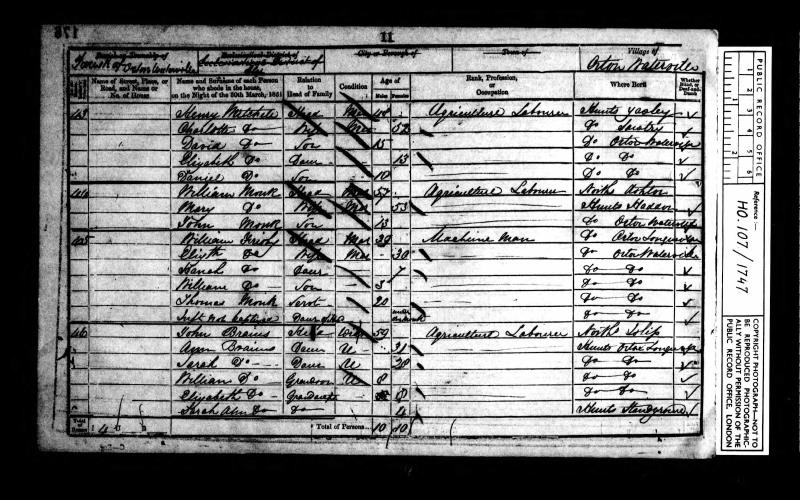 178
11
Parish or Township of
Ecclesiastical District of
City or Borough of
Town of
Village of
Parish of Orton Waterville
Orton Waterville
Name of Street, Place, or Road, and Name or No. of House
Name and Surname of each Person who abode in the house, on the Night of the 30th March, 1851
Relation to Head of Family
Condition
Age of
Males Females
Rank, Profession, or Occupation
Where Born
Whether Blind, or Deaf-and-Dumb
43 Henry Head Mar Agriculture Labourer Hunts Yaxley
Charlotte Do Wife Mar 52 Do
David Do Son 15 Do Orton Waterville
Elizabeth Do Daur 13 Do Do
Daniel Do Son 10 Do Do
44 William Monk Head Mar 57 Agriculture Labourer North
Mary Do Wife Mar 53 Hunts Haddon
John Monk Son 13 Do Orton Waterville
45 William Head Mar 29 Machine Man Do Orton Longueville
Elizth Do Wife Mar 30 Do Orton Waterville
Do Daur 7 Do Do
William Do Son 3 Do Do
Thomas Monk Servt 20 Do Do
Inft Not Baptised Daur Do Do
46 John Brains Head 59 Agriculture Labourer North
Ann Brains Daur U 21 Hunts Orton Longueville
Sarah Do Daur U 28 Do Do
William Do Grandson U 8 Do Do
Elizabeth Do 6 Do Do
Sarah Ann Do Do 4 Hunts
Total of Houses 4
Total of Persons 10 10
PUBLIC RECORD OFFICE
1 2 3 4 5 6
1 2
Reference :-
HO. 107/1747
COPYRIGHT PHOTOGRAPH—NOT TO BE REPRODUCED PHOTOGRAPHICALLY WITHOUT PERMISSION OF THE PUBLIC RECORD OFFICE, LONDON